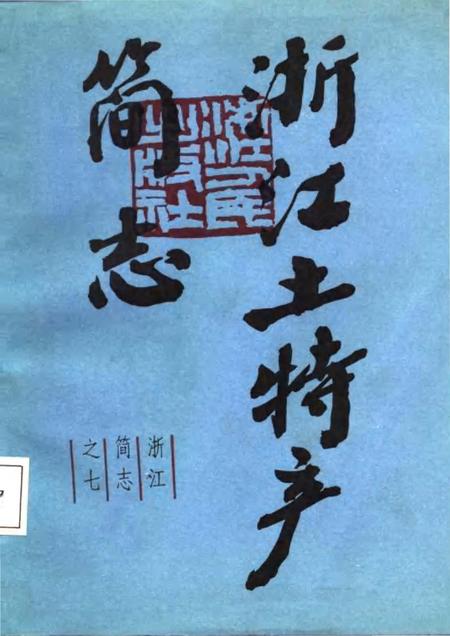 浙江土特产
简志
浙江人民
出版社
浙江
简志
之七